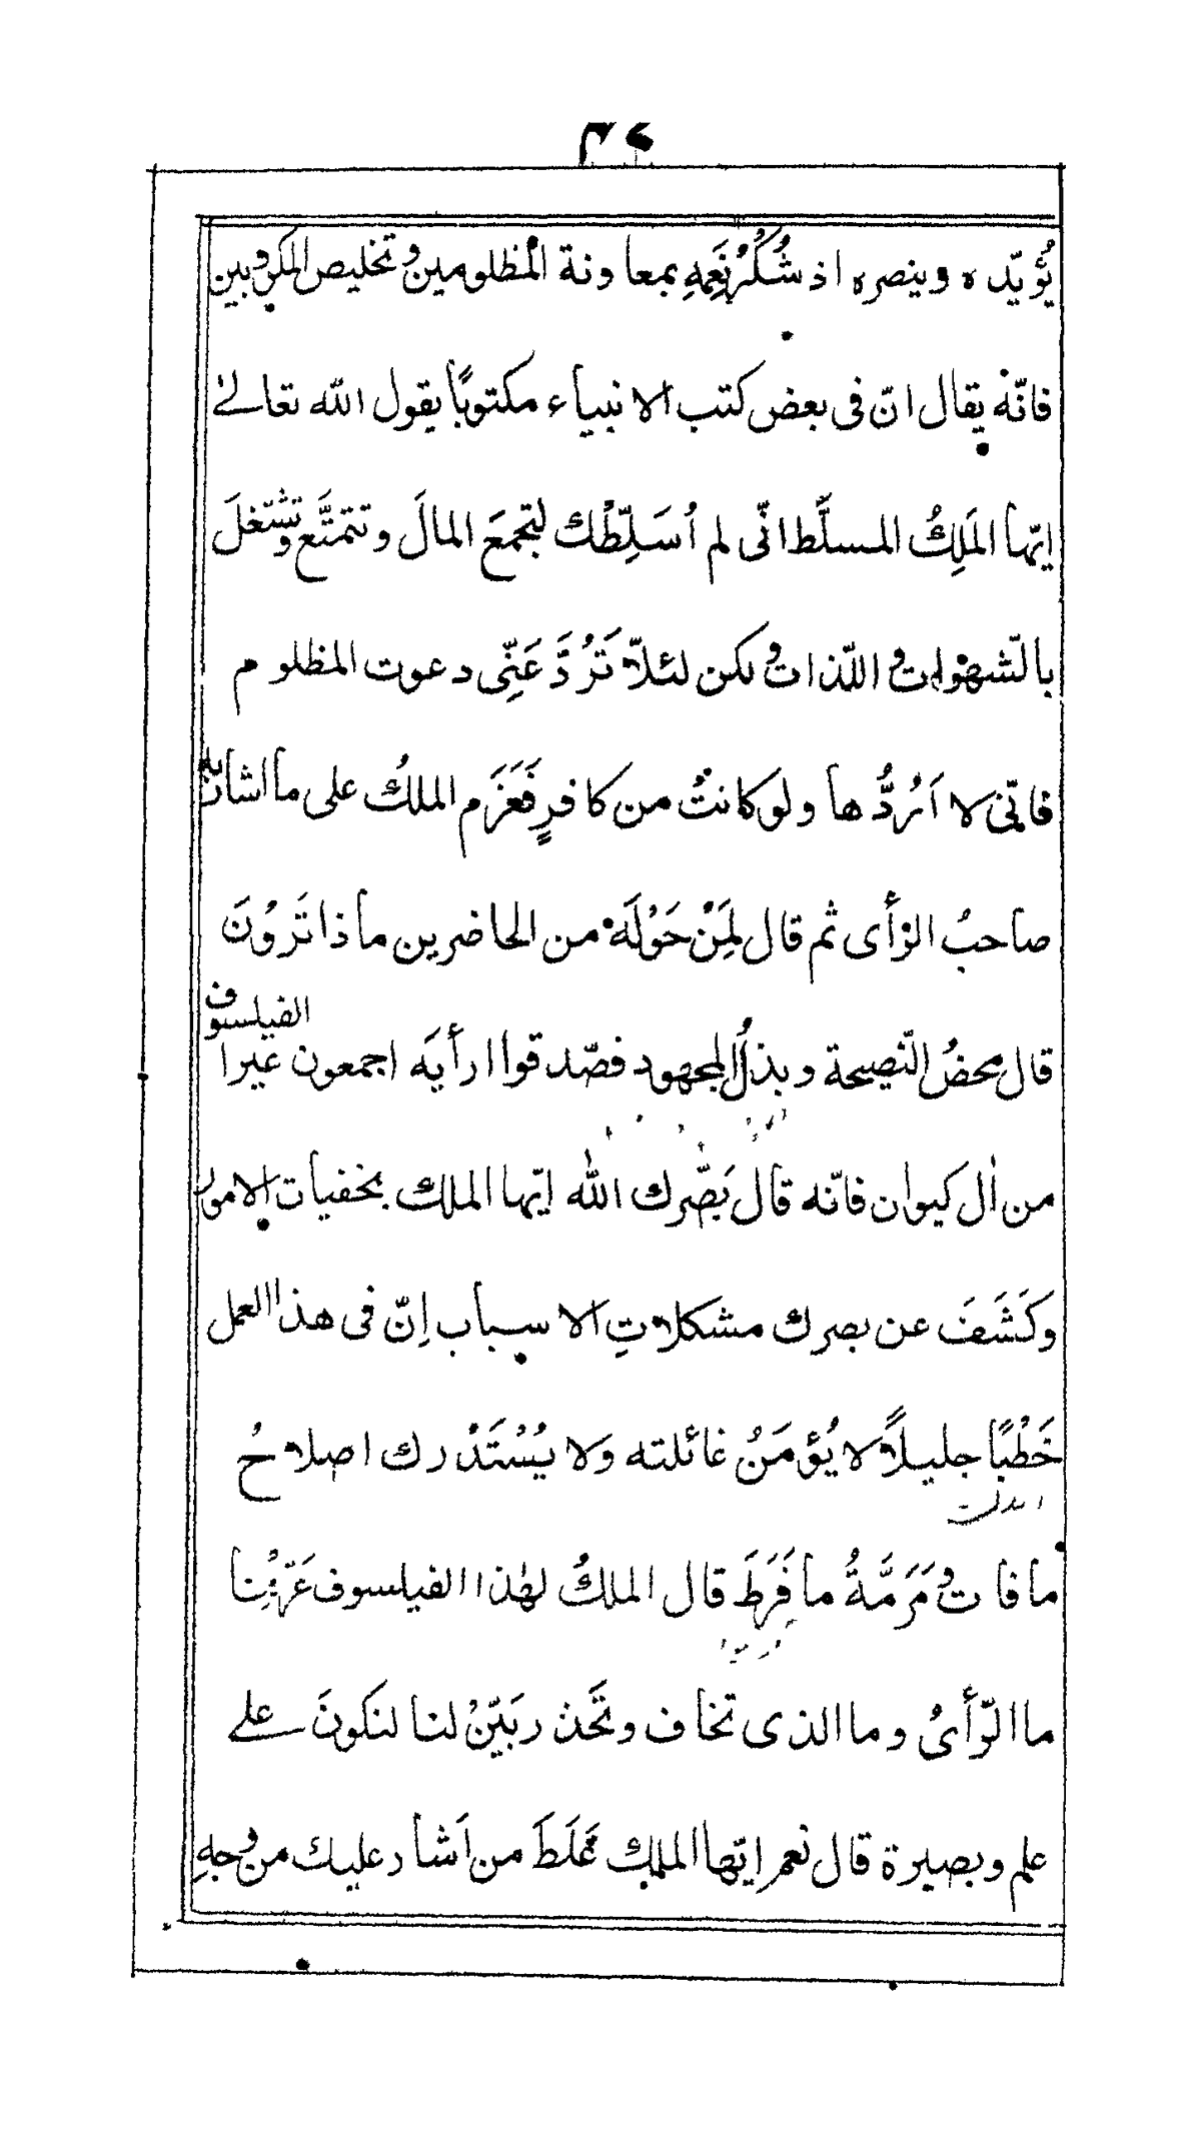 يُؤيّده وينصره اذ شُكْرُ نِعَمِهِ بمعاونة المُظلومين وتخليص المكروبين
فانّهُ يقال انّ فى بعض كتب الانبياء مكتوبًا يقول الله تعالىٰ
ايّها المَلِكُ المسلَّط انّى لم اُسَلِّطْك لتجمعَ المالَ وتتمتَّع وتشتغلَ
بالشّهوات واللّذات ولكن لئلّا تَرُدَّ عَنِّى دعوت المظلوم
فانّى لا اَرُدُّها ولو كانتْ من كافرٍ فَعَزَم الملكُ على ما اشار به
صاحبُ الرّأى ثم قال لِمَنْ حَوْلَهُ من الحاضرين ماذا تَرَوْنَ
قال محضُ النّصيحة وبذلُ المجهود فصّدقوا ارأيَه اجمعون غيرا الفيلسوف
من اٰل كيوان فانّه قال بَصَّرك الله ايّها الملك بخفيات الامور
وكَشَفَ عن بصرك مشكلاتِ الاسباب إنّ فى هذا العمل
خَطْبًا جليلاً لا يُؤمَنُ غائلته ولا يُسْتَدْرك اصلاحُ
مافات ومَرَمَّةُ ما فَرَطَ قال الملكُ لهٰذا الفيلسوف عَرِّفْنا
ما الرّأىُ وما الذى تخاف وتَحْذر بَيِّنْ لنا لنكونَ على
علم وبصيرة قال نعم ايّها الملك غَلَطَ من اَشار عليك من وجهِ